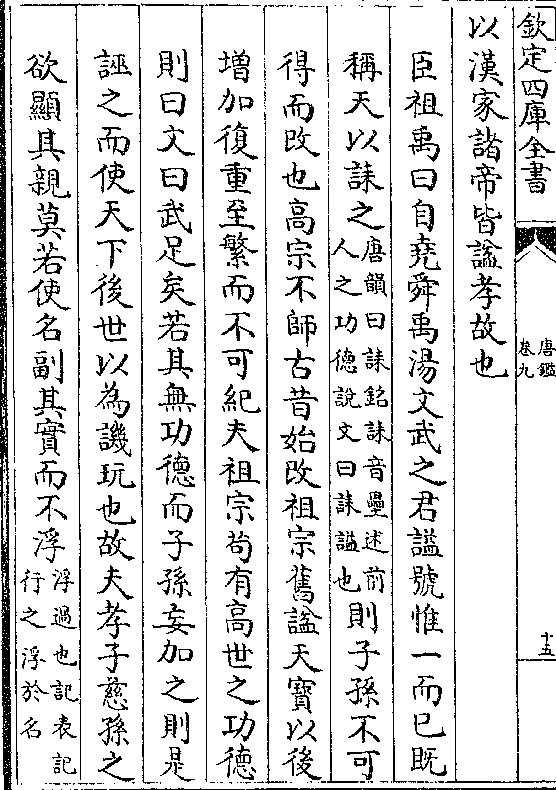 欽定四庫全書
唐鑑
卷九
十五
以漢家諸帝皆謚孝故也
臣祖禹曰自堯舜禹湯文武之君謚號惟一而已既
稱天以誄之唐韻曰誄銘誄音壘述前人之功德說文曰誄謚也則子孫不可
得而改也高宗不師古昔始改祖宗舊謚天寶以後
增加復重至繁而不可紀夫祖宗茍有高世之功德
則曰文曰武足矣若其無功德而子孫妄加之則是
誣之而使天下後世以為譏玩也故夫孝子慈孫之
欲顯其親莫若使名副其實而不浮浮過也記表記行之浮於名